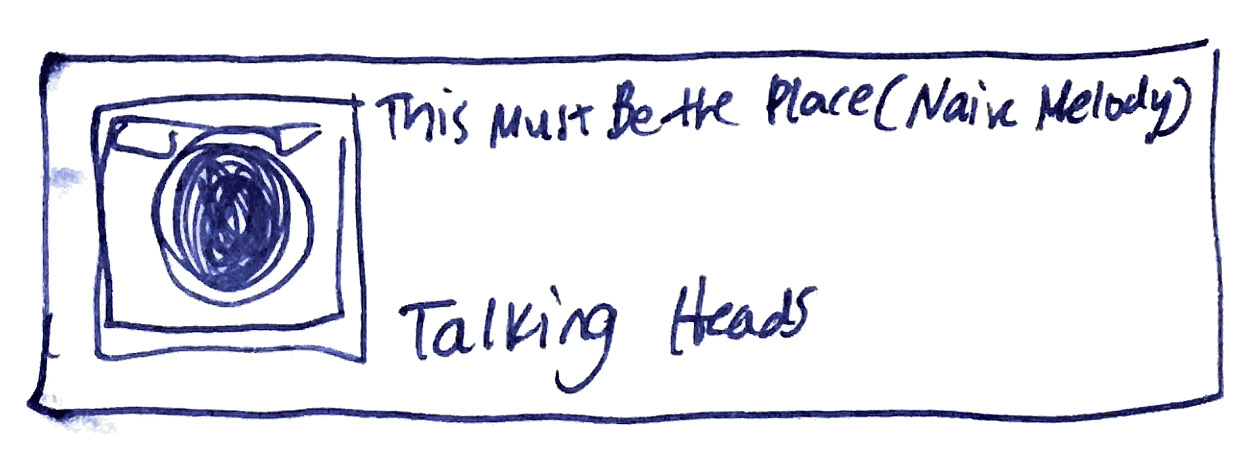 This Must Be the Place (Naive Melody)
Talking Heads